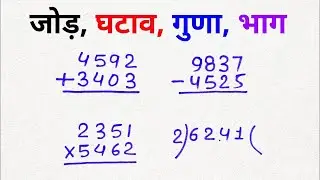 जोड़, घटाव, गुणा, भाग
4592
+3403
9837
-4525
2351
x5462
2)6241(